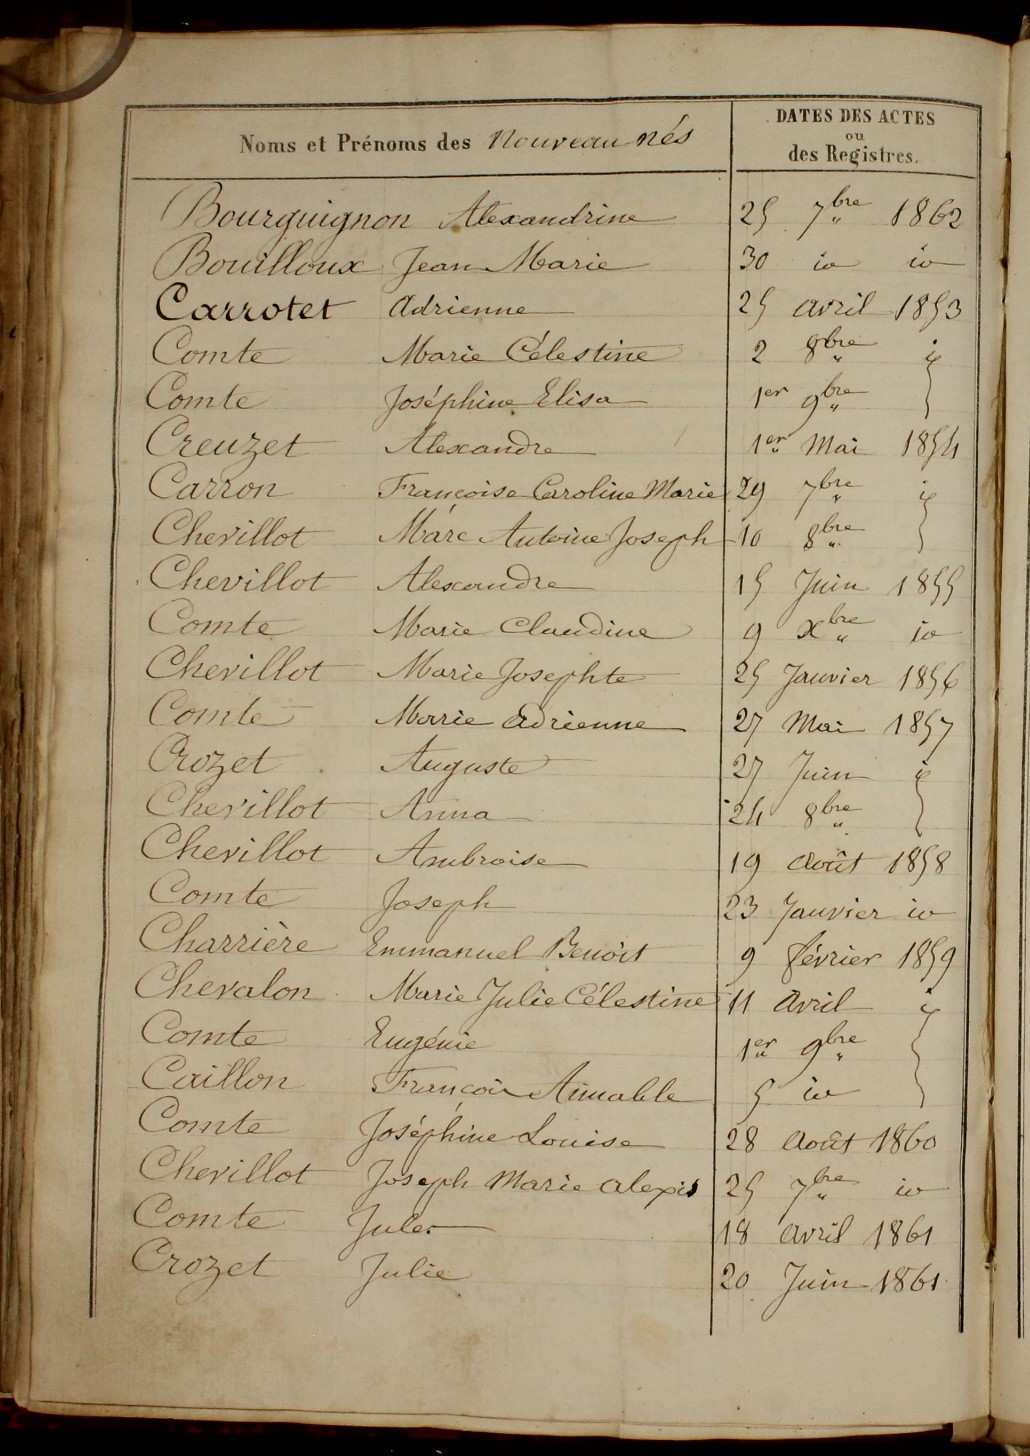 Noms et Prénoms des Nouveau nés
DATES DES ACTES
ou
des Registres.
Bourguignon Alexandrine 25 7bre 1862
Bouilloux Jean Marie 30 id id
Carrotet Adrienne 25 avril 1853
Comte Marie Célestine 2 8bre id
Comte Joséphine Elisa 1er 9bre
Creuzet Alexandre 1er Mai 1854
Carron Françoise Caroline Marie 29 7bre id
Chevillot Marc Antoine Joseph 10 8bre
Chevillot Alexandre 15 Juin 1855
Comte Marie Claudine 9 Xbre id
Chevillot Marie Josephte 25 Janvier 1856
Comte Marie Adrienne 27 Mai 1857
Crozet Auguste 27 Juin id
Chevillot Anna 24 8bre
Chevillot Ambroise 19 Août 1858
Comte Joseph 23 Janvier id
Charrière Emmanuel Benoit 9 février 1859
Chevalon Marie Julie Célestine 11 Avril id
Comte Eugénie 1er 9bre
Caillon François Aimable 5 id
Comte Joséphine Louise 28 Août 1860
Chevillot Joseph Marie Alexis 25 7bre id
Comte Jules 18 Avril 1861
Crozet Julie 20 Juin 1861